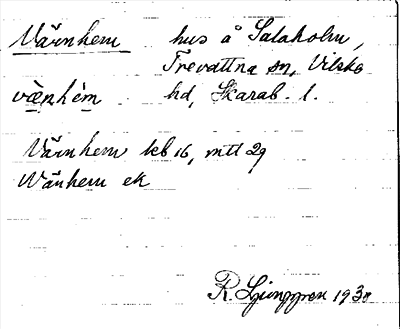 Värnhem hus å Salaholm,
Trevattna sn, Vilske
væ̀nhèm hd, Skarab. l.
Värnhem kb 16, mtl 29
Wänhem ek
R. Ljunggren 1930